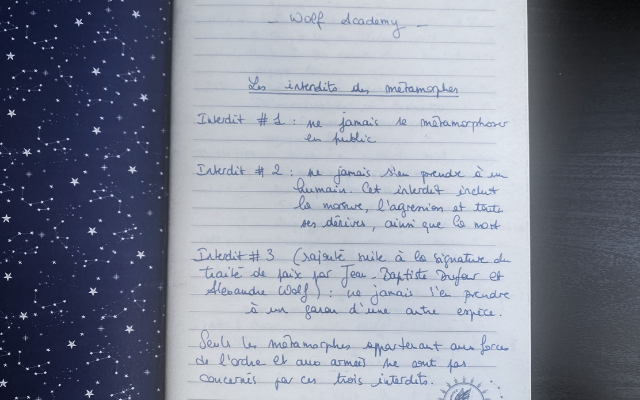 - Wolf Academy -
Les interdits des métamorphes
Interdit # 1 : ne jamais se métamorphoser
en public
Interdit # 2 : ne jamais s'en prendre à un
humain. Cet interdit inclut
la morsure, l'agression et toutes
ses dérives, ainsi que la mort
Interdit # 3 (rajouté suite à la signature du
traité de paix par Jean-Baptiste Dufour et
Alexandre Wolf) : ne jamais s'en prendre
à un garou d'une autre espèce.
Seuls les métamorphes appartenant aux forces
de l'ordre et aux armées ne sont pas
concernés par ces trois interdits.